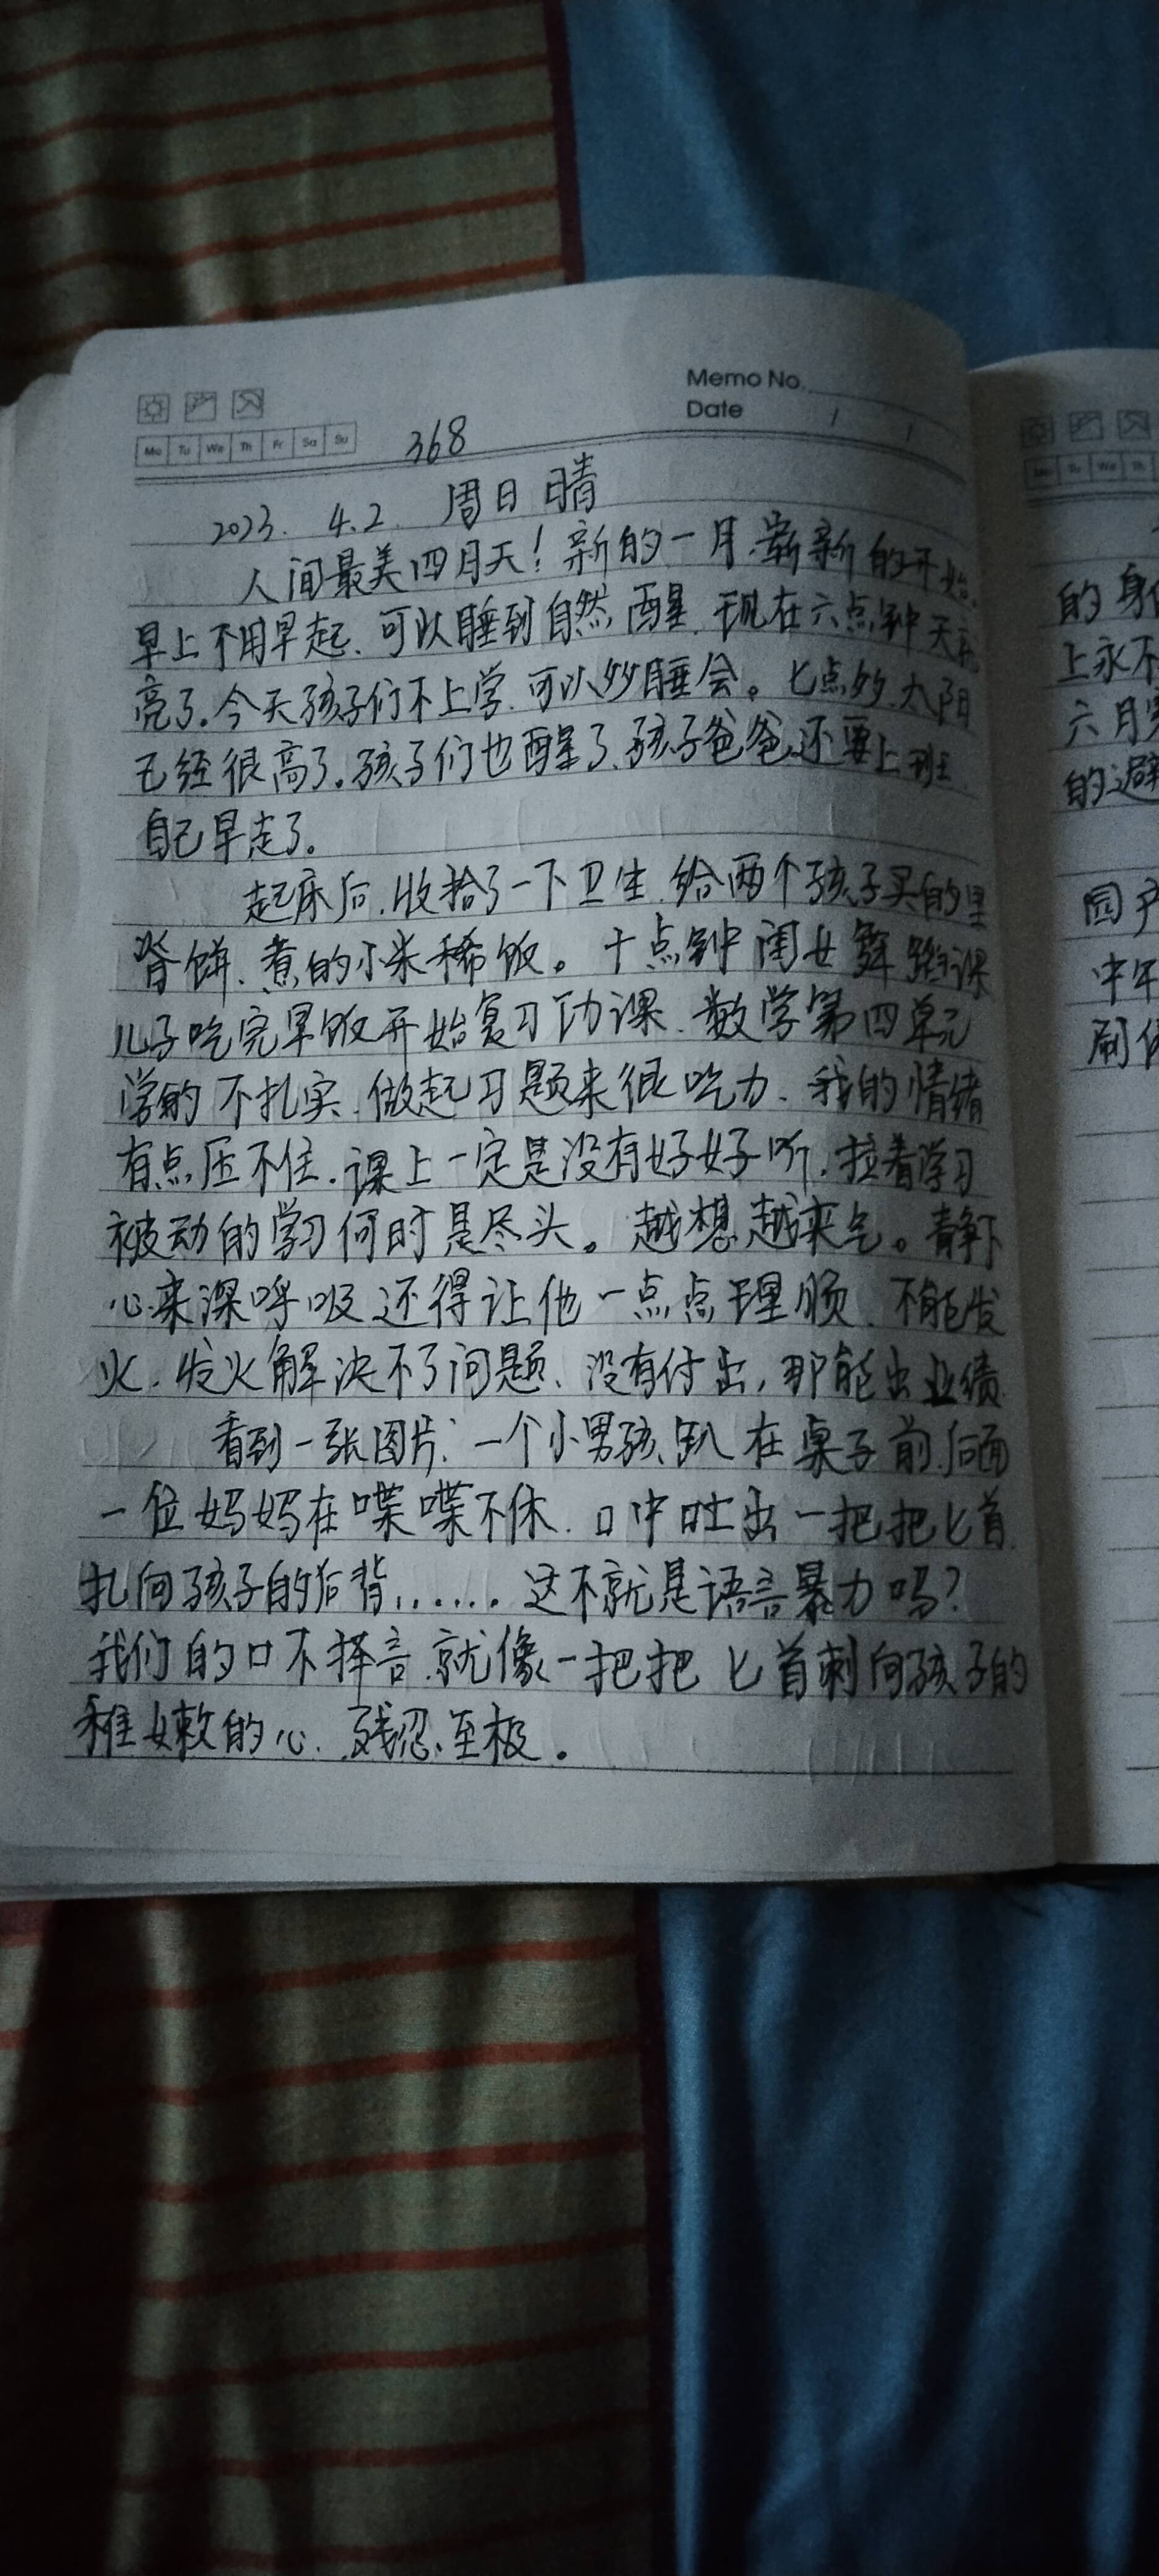 Memo No.
Date / /
Mo Tu We Th Fr Sa Su
368
2023. 4.2. 周日 晴
人间最美四月天！新的一月.崭新的开始.
早上不用早起、可以睡到自然醒.现在六点钟天就
亮了.今天孩子们不上学.可以多睡会。七点多.太阳
已经很高了.孩子们也醒了、孩子爸爸还要上班.
自己早走了.
起床后.收拾了一下卫生.给两个孩子买的里
脊饼、煮的小米稀饭。十点钟闺女舞蹈课
儿子吃完早饭开始复习功课、数学第四单元
学的不扎实.做起习题来很吃力、我的情绪
有点压不住.课上一定是没有好好听.拉着学习
被动的学习何时是尽头。越想越来气。静下
心来深呼吸还得让他一点点理顺、不能发
火.发火解决不了问题、没有付出,那能出业绩
看到一张图片:一个小男孩趴在桌子前.后面
一位妈妈在喋喋不休.口中吐出一把把匕首
扎向孩子的后背......这不就是语言暴力吗?
我们的口不择言.就像一把把匕首刺向孩子的
稚嫩的心.残忍至极。
Mo Tu We Th
的身
上永不
六月
的避
园
中午
刷